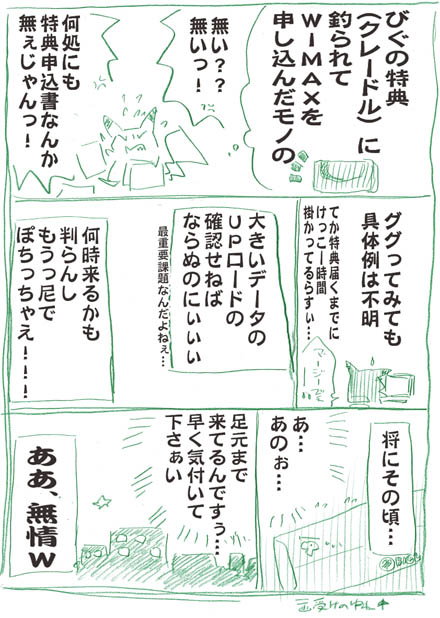 びぐの特典
（クレードル）に
釣られて
ＷＩＭＡＸを
申し込んだモノの
無い？？
無いっ！
何処にも
特典申込書なんか
無ぇじゃんっ！
ググってみても
具体例は不明
てか特典届くまでに
けっこー時間
掛かってるらすぃ…
マージーでー
大きいデータの
ＵＰロードの
確認せねば
ならぬのにぃぃぃ
最重要課題なんだよねぇ…
何時来るかも
判らんし
もうっ尼で
ぽちっちゃえ！！！
将にその頃…
あ…
あのぉ…
足元まで
来てるんですぅ…
早く気付いて
下さぁい
ああ、無情ｗ